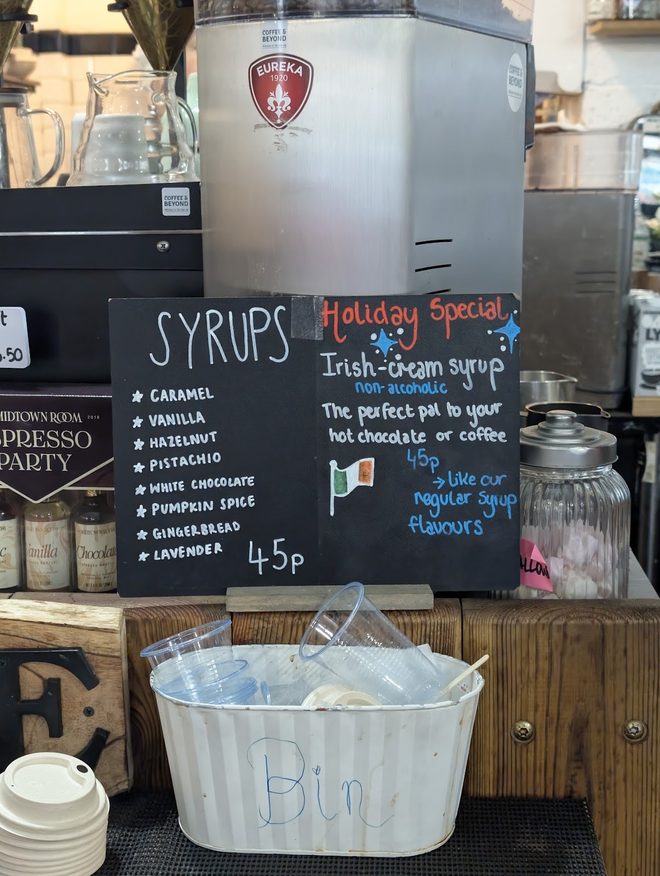 COFFEE &
BEYOND
EUREKA
1920
COFFEE &
BEYOND
.50
MIDTOWN ROOM
SPRESSO
PARTY
Vanilla
Chocolat
SYRUPS
CARAMEL
VANILLA
HAZELNUT
PISTACHIO
WHITE CHOCOLATE
PUMPKIN SPICE
GINGERBREAD
LAVENDER
45p
Holiday Special
Irish-cream syrup
non-alcoholic
The perfect pal to your
hot chocolate or coffee
45p
→ like our
regular syrup
flavours
ALLOW
LY
E
Bin